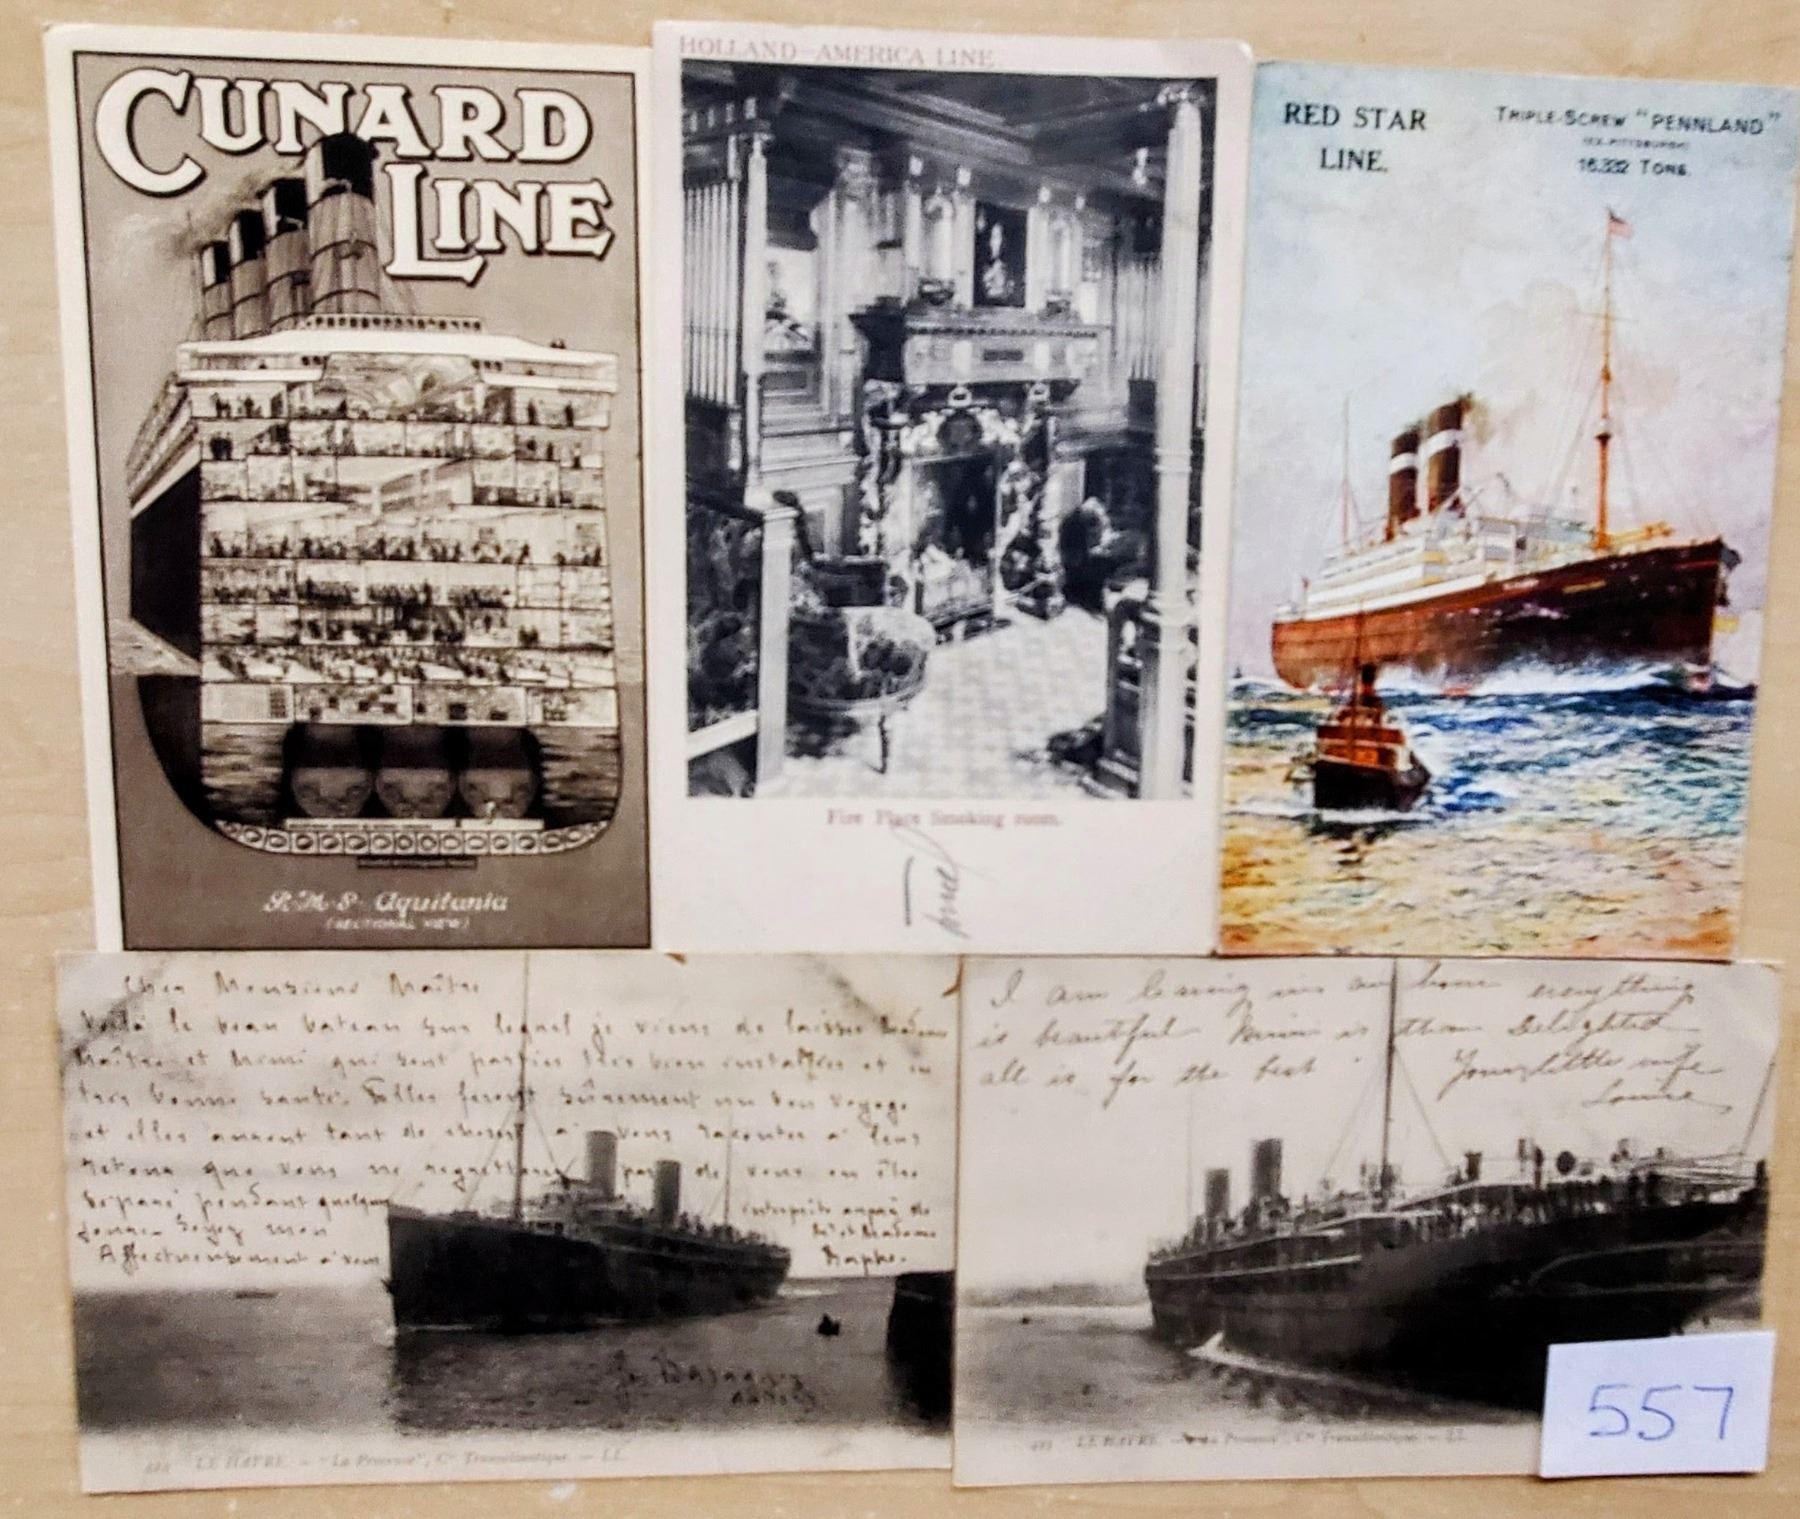 CUNARD
LINE
R.M.S. Aquitania
(SECTIONAL VIEW)
HOLLAND-AMERICA LINE
Fire Place Smoking room.
RED STAR
LINE.
TRIPLE-SCREW "PENNLAND"
(EX-PITTSBURGH)
16,332 TONS.
Cher Monsieur Maître
Voilà le beau bateau sur lequel je viens de laisser Madame
Maître et Mimi qui sont parties très bien installées et en
très bonne santé. Elles feront sûrement un bon voyage
et elles auront tant de choses à vous raconter à leur
retour que vous ne regretterez pas de vous en être
séparé pendant quelques
jours. Soyez mon
interprète auprès de
Mr et Madame
Affectueusement à vous
LE HAVRE. - "La Provence", Cie Transatlantique. - LL.
I am leaving in an hour everything
is beautiful Mimi is then delighted
all is for the best.
Your little wife
Louise
LE HAVRE - "La Provence", Cie Transatlantique. - LL
557